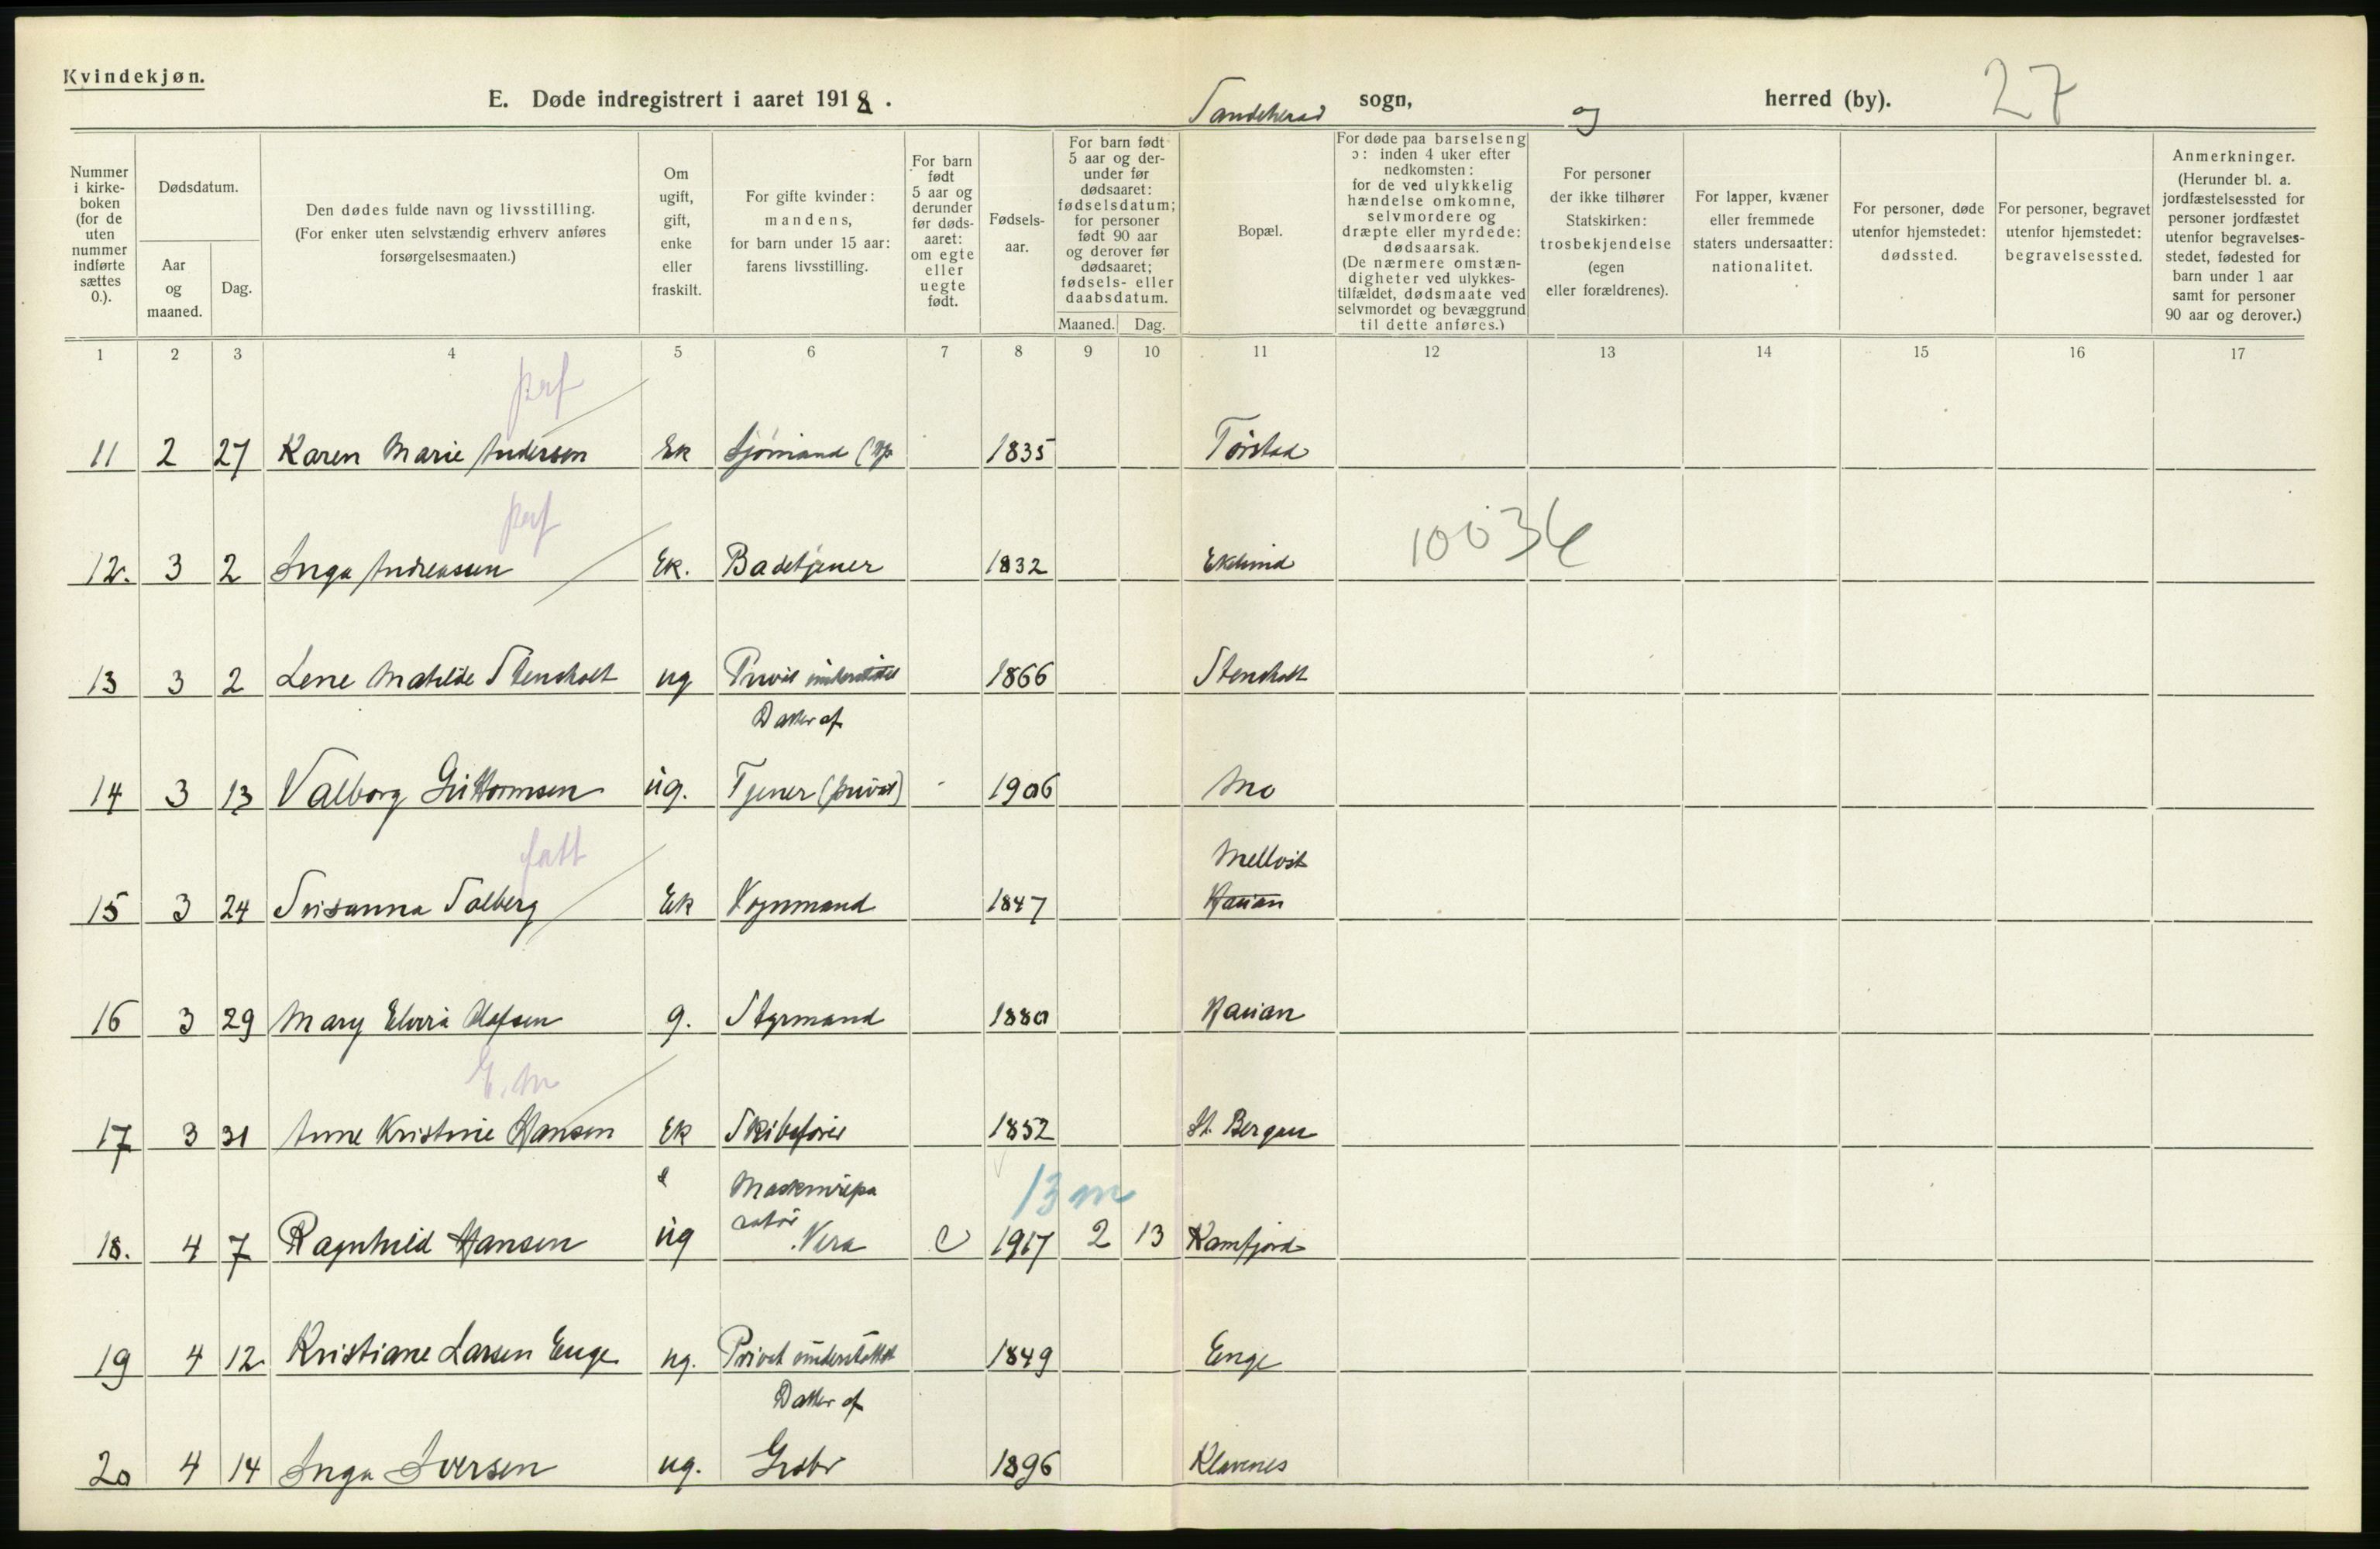 Kvindekjøn.
E. Døde indregistrert i aaret 1918.
Sandeherad sogn, og herred (by). 27
Nummer i kirke-boken (for de uten nummer indførte sættes 0.).
Dødsdatum.
Aar og maaned.
Dag.
Den dødes fulde navn og livsstilling.
(For enker uten selvstændig erhverv anføres forsørgelsesmaaten.)
Om ugift, gift, enke eller fraskilt.
For gifte kvinder: mandens, for barn under 15 aar: farens livsstilling.
For barn født 5 aar og derunder før døds-aaret: om egte eller uegte født.
Fødsels-aar.
For barn født 5 aar og der-under før dødsaaret: fødselsdatum; for personer født 90 aar og derover før dødsaaret; fødsels- eller daabsdatum.
Maaned. Dag.
Bopæl.
For døde paa barselseng ɔ: inden 4 uker efter nedkomsten: for de ved ulykkelig hændelse omkomne, selvmordere og dræpte eller myrdede: dødsaarsak. (De nærmere omstæn-digheter ved ulykkes-tilfældet, dødsmaate ved selvmordet og bevæggrund til dette anføres.)
For personer der ikke tilhører Statskirken: trosbekjendelse (egen eller forældrenes).
For lapper, kvæner eller fremmede staters undersaatter: nationalitet.
For personer, døde utenfor hjemstedet: dødssted.
For personer, begravet utenfor hjemstedet: begravelsessted.
Anmerkninger.
(Herunder bl. a. jordfæstelsessted for personer jordfæstet utenfor begravelses-stedet, fødested for barn under 1 aar samt for personer 90 aar og derover.)
1 2 3 4 5 6 7 8 9 10 11 12 13 14 15 16 17
11 2 27 Karen Marie Andersen Ek Sjømand 1835
12. 3 2 Inga Andreassen Ek. Badetjener 1832 Eklund 10036
13 3 2 Lene Matilde Stensholt ug Privat understøttet 1866 Stensholt
Datter af
14 3 13 Valborg Guttormsen ug. Tjener (privat) - 1906 Mo
fatt
Mellvik
15 3 24 Susanna Solberg Ek Vognmand 1847 Hauan
16 3 29 Mary Elvira Olafsen g. Styrmand 1880 Hauan
E.M
17 3 31 Anne Kristine Hansen Ek Skibsfører 1852 St. Bergan
Maskinrepa
ratør 13 m
18. 4 7 Ragnhild Hansen ug Vera e 1917 2 13 Kamfjord
19 4 12 Kristiane Larsen Enge ug. Privat understøttet 1849 Enge
Datter af
20 4 14 Inga Iversen ug. Grbr 1896 Klavenes